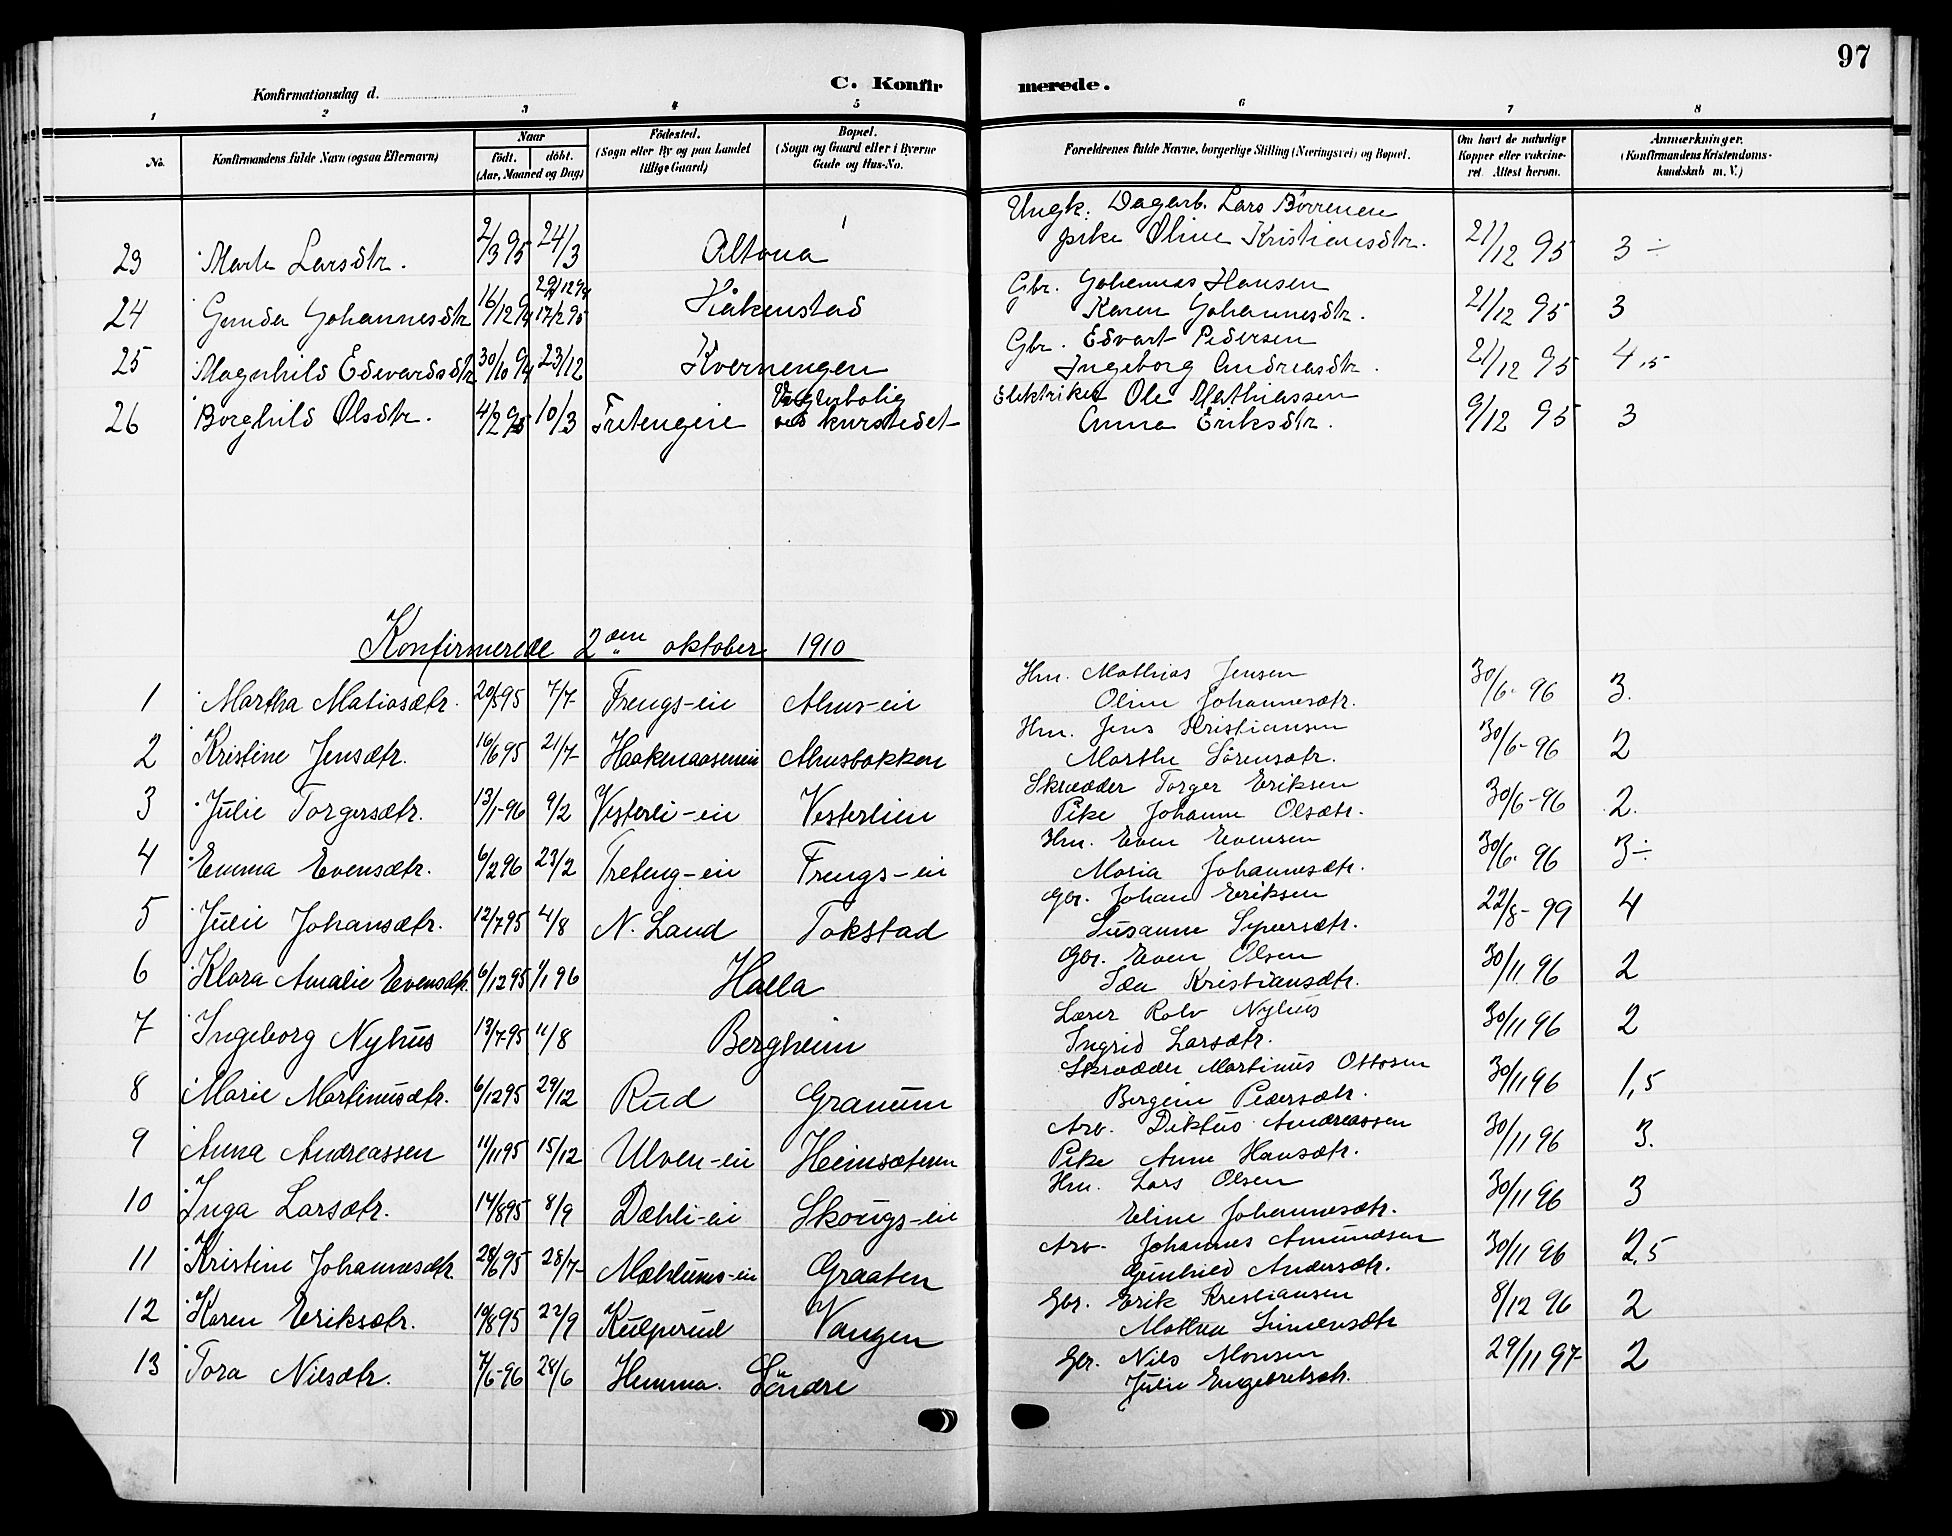 97
C. Konfirmerede.
Konfirmationsdag d.
1 2 3 4 5 6 7 8
No. Konfirmandens fulde Navn (ogsaa Efternavn) Naar født. døbt. (Aar, Maaned og Dag) Fødested. (Sogn eller By og paa Landet tillige Gaard) Bopæl. (Sogn og Gaard eller i Byerne Gade og Hus-No. Forældrenes fulde Navne, borgerlige Stilling (Næringsvei) og Bopæl. Om havt de naturlige Kopper eller vakcineret. Attest herom. Anmærkninger. (Konfirmandens Kristendomskundskab m. V.)
Ungk. Dagarb. Lars
23 Larsdtr. 2/3 95 24/3 Altona pike Oline Kristiansdtr. 21/12 95 3 ÷
29/12 94 Gbr. Johannes Hansen
24 Gunda Johannesdtr 16/12 94 17/2 95 Håkenstad Karen Johannesdtr. 21/12 95 3
Gbr. Edvart Pedersen
25 Magnhild Edevardsdtr 30/10 94 23/12 Kvernengen Ingeborg Andreasdtr. 21/12 95 4,5
Elektriker Ole Mathiassen
26 Borghild Olsdtr. 4/2 95 10/3 Tretengeie ved kurstedet Anna Eriksdtr. 9/12 95 3
Konfirmerede 2den oktober 1910
Hm. Mathias Jensen
1 Martha Matiasdtr. 20/5 95 7/7 Trengs-eie Ahus-eie Oline Johannesdtr. 30/6. 96 3.
Hm. Jens Kristiansen
2 Kristine Jensdtr. 16/6 95 21/7 Ahusbakken Marthe Sørensdtr. 30/6-96 2
Skrædder Torger Eriksen
3 Julie Torgersdtr. 13/1-96 9/2 Vesterli-eie Vesterlien Pike Johanne Olsdtr. 30/6-96 2.
Hm. Even Evensen
4 Emma Evensdtr. 6/2 96 23/2 Treteng-eie Trengs-eie Maria Johannesdtr. 30/6. 96 3÷
Gbr. Johan Eriksen
5 Julie Johansdtr. 12/7 95 4/8 N. Land Tokstad Susanne Syversdtr. 22/8-99 4
Gbr. Even Olsen
6 Klara Amalie Evensdtr. 6/12 95 1/1 96 Halla Ida Kristiansdtr. 30/11. 96 2
Lærer Rolv Nyhus
7 Ingeborg Nyhus 13/7-95 11/8 Bergheim Ingrid Larsdtr. 30/11 96 2
Skrædder Martinus Ottosen
8 Marie Martinusdtr. 6/12 95 29/12 Rud Granum Bergine Pedersdtr. 30/11 96 1,5
Arb. Andreassen
9 Anna Andreassen 11/11 95 15/12 Ulven-eie Heimsæteren Pike Anne Hansdtr. 30/11 96 3.
Hm. Lars Olsen
10 Inga Larsdtr. 14/8 95 8/9 Dæhli-eie Skougs-eie Eline Johannesdtr. 30/11 96 3
Arb. Johannes Amundsen
11 Kristine Johannesdtr. 28/6 95 28/7 Mæhlums-eie Graaten Gunhild Andersdtr. 30/11 96 2,5
Gbr. Erik Kristiansen
12 Karen Eriksdtr. 19/8 95 22/9 Kulperud Vangen Simensdtr 8/12 96 2
Gbr. Nils Monsen
13 Tora Nilsdtr. 7/6-96 28/6 Hemma. Søndre Julie Engebretsdtr. 29/11 97 2